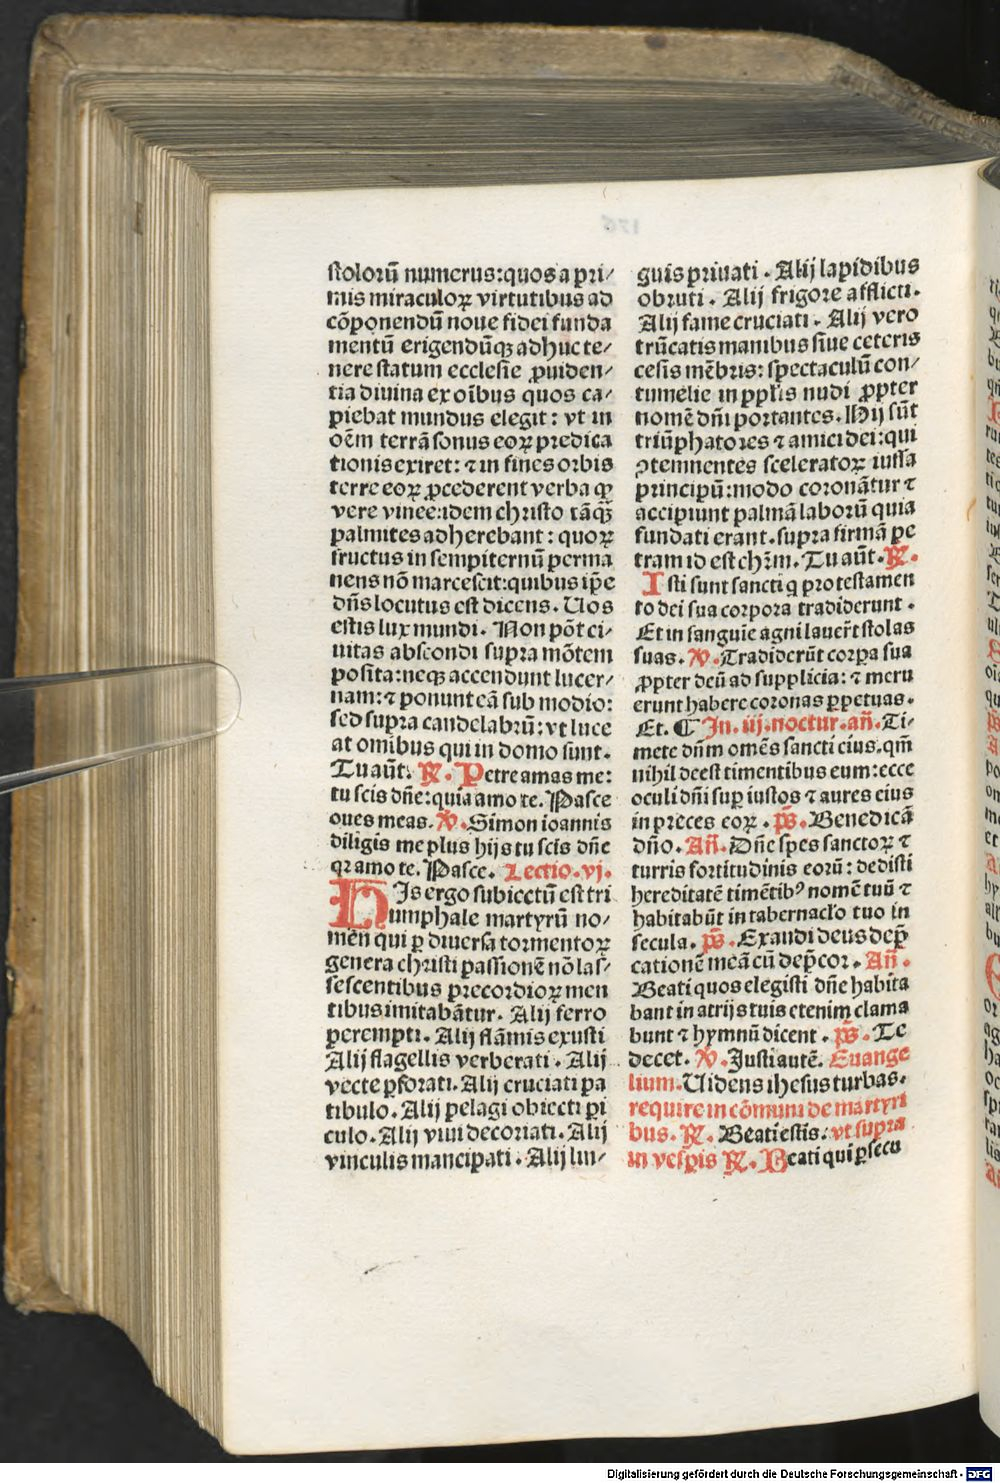 stolorū numerus:quos a pri/
mis miraculoꝝ virtutibus ad
cōponendū noue fidei funda
mentū erigendūqꝫ adhuc te/
nere statum ecclesie ꝓuiden/
tia diuina ex oībus quos ca/
piebat mundus elegit: vt in
oēm terrā sonus eoꝝ predica
tionis exiret: ⁊ in fines orbis
terre eoꝝ ꝓcederent verba qꝫ
vere vinee:idem christo tāqꝫ
palmites adherebant: quoꝝ
fructus in sempiternū perma
nens nō marcescit:quibus ip̄e
dn̄s locutus est dicens. Uos
estis lux mundi. Non pōt ci/
uitas abscondi supra mōtem
posita:neqꝫ accendunt lucer/
nam:⁊ ponunt eā sub modio:
sed supra candelabrū:vt luce
at omibus qui in domo sunt.
Tu aūt. ℟. Petre amas me:
tu scis dn̄e:quia amo te. Pasce
oues meas. ℣. Simon ioannis
diligis me plus hijs tu scis dn̄e
qꝛ amo te. Pasce. Lectio.vj.
HIs ergo subiectū est tri
umphale martyrū no/
men qui ꝑ diuersa tormentoꝝ
genera christi passionē nō las/
sescentibus precordioꝝ men
tibus imitabātur. Alij ferro
perempti. Alij flāmis exusti
Alij flagellis verberati. Alij
vecte ꝑforati. Alij cruciati pa
tibulo. Alij pelagi obiecti pi
culo. Alij viui decoriati. Alij
vinculis mancipati. Alij lin/
guis priuati. Alij lapidibus
obruti. Alij frigore afflicti.
Alij fame cruciati. Alij vero
trūcatis manibus siue ceteris
cesis mēbris: spectaculū con/
tumelie in ppl̄is nudi ꝓpter
nomē dn̄i portantes. Hij sūt
triūphatores ⁊ amici dei:qui
ꝯtemnentes sceleratoꝝ iussa
principū:modo coronātur ⁊
accipiunt palmā laborū quia
fundati erant.supra firmā pe
tram id est chr̄m. Tu aūt. ℟.
Isti sunt sancti q̄ pro testamen
to dei sua corpora tradiderunt.
Et in sanguīe agni lauer̄t stolas
suas. ℣. Tradiderūt corpa sua
ꝓpter deū ad supplicia: ⁊ meru
erunt habere coronas ꝑpetuas.
Et. ¶ In.iij.noctur.an̄. Ti-
mete dn̄m omēs sancti eius.qm̄
nihil deest timentibus eum:ecce
oculi dn̄i suꝑ iustos ⁊ aures eius
in preces eoꝝ. ps̄. Benedicā
dn̄o. An̄. Dn̄e spes sanctoꝝ ⁊
turris fortitudinis eorū: dedisti
hereditatē timētibꝰ nomē tuū ⁊
habitabūt in tabernacl̄o tuo in
secula. ps̄. Exaudi deus dep̄
cationē meā cū dep̄cor. An̄.
Beati quos elegisti dn̄e habita
bant in atrijs tuis etenim clama
bunt ⁊ hymnū dicent. ps̄. Te
decet. ℣. Justi autē. Euange
lium. Uidens ihesus turbas.
require in cōmuni de martyri
bus. ℟. Beati estis. vt supra
in vesp̄is ℟. Beati qui ꝑsecu
Digitalisierung gefördert durch die Deutsche Forschungsgemeinschaft - DFG